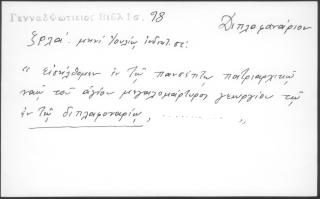 Γενναδιωτικὴ Βιβλ/θ. 98
Διπλοφανάριον
ζρλα΄. μηνὶ Ἰουλίῳ ἰνδικτ. σε:
" εἰσήλθομεν ἐν τῷ πανσέπτῳ πατριαρχικῷ
ναῷ τοῦ ἁγίου μεγαλομάρτυρος γεωργίου τῷ
ἐν τῷ διπλοφαναρίῳ, .......... "